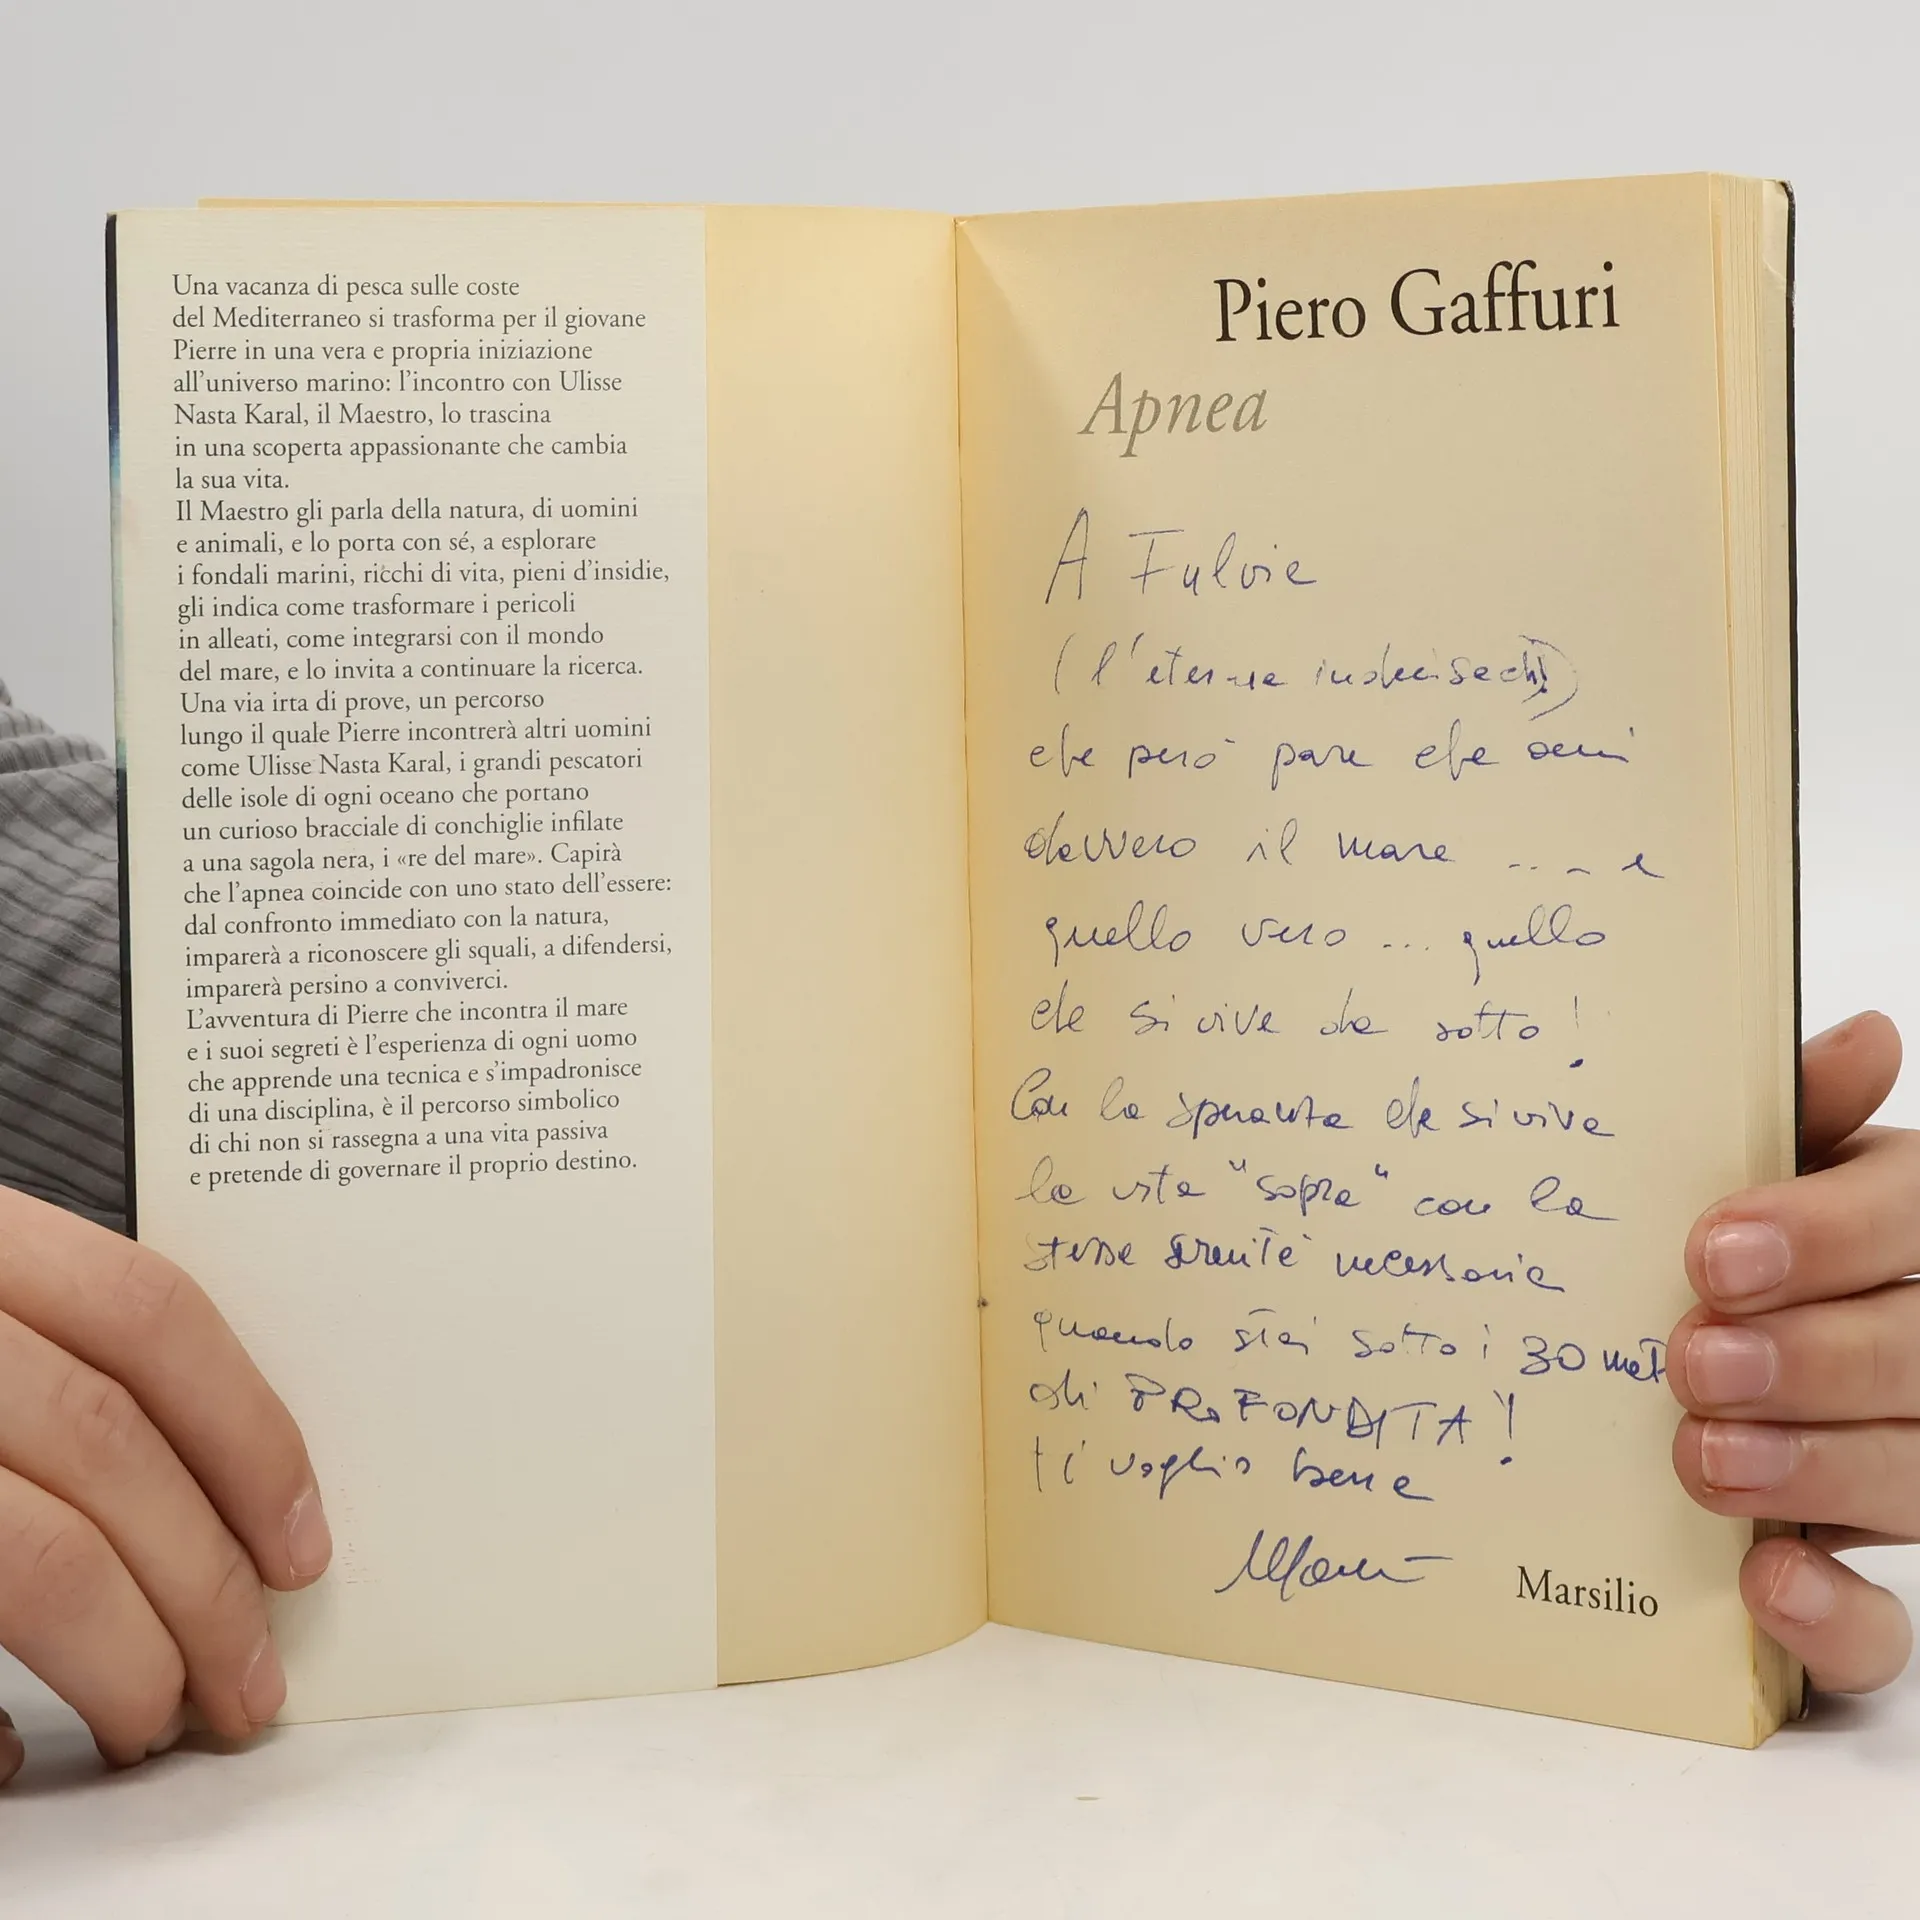 Una vacanza di pesca sulle coste
del Mediterraneo si trasforma per il giovane
Pierre in una vera e propria iniziazione
all'universo marino: l'incontro con Ulisse
Nasta Karal, il Maestro, lo trascina
in una scoperta appassionante che cambia
la sua vita.
Il Maestro gli parla della natura, di uomini
e animali, e lo porta con sé, a esplorare
i fondali marini, ricchi di vita, pieni d'insidie,
gli indica come trasformare i pericoli
in alleati, come integrarsi con il mondo
del mare, e lo invita a continuare la ricerca.
Una via irta di prove, un percorso
lungo il quale Pierre incontrerà altri uomini
come Ulisse Nasta Karal, i grandi pescatori
delle isole di ogni oceano che portano
un curioso bracciale di conchiglie infilate
a una sagola nera, i «re del mare». Capirà
che l'apnea coincide con uno stato dell'essere:
dal confronto immediato con la natura,
imparerà a riconoscere gli squali, a difendersi,
imparerà persino a conviverci.
L'avventura di Pierre che incontra il mare
e i suoi segreti è l'esperienza di ogni uomo
che apprende una tecnica e s'impadronisce
di una disciplina, è il percorso simbolico
di chi non si rassegna a una vita passiva
e pretende di governare il proprio destino.
Piero Gaffuri
Apnea
A Fulvia
(l'eterna
che però pare che ami
davvero il mare .... e
quello vero ... quello
che si vive da sotto!
Con la speranza che si viva
la vita "sopra" con la
stessa serenità necessaria
quando stai sotto i 30 met
di PROFONDITA!
ti voglio bene
Marsilio